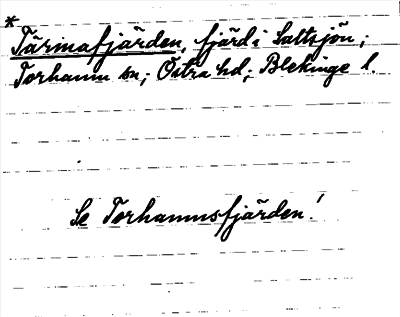 *
Tärinafjärden, fjärd i Saltsjön;
Torhamn sn; Östra hd; Blekinge l.
Se Torhamnsfjärden!